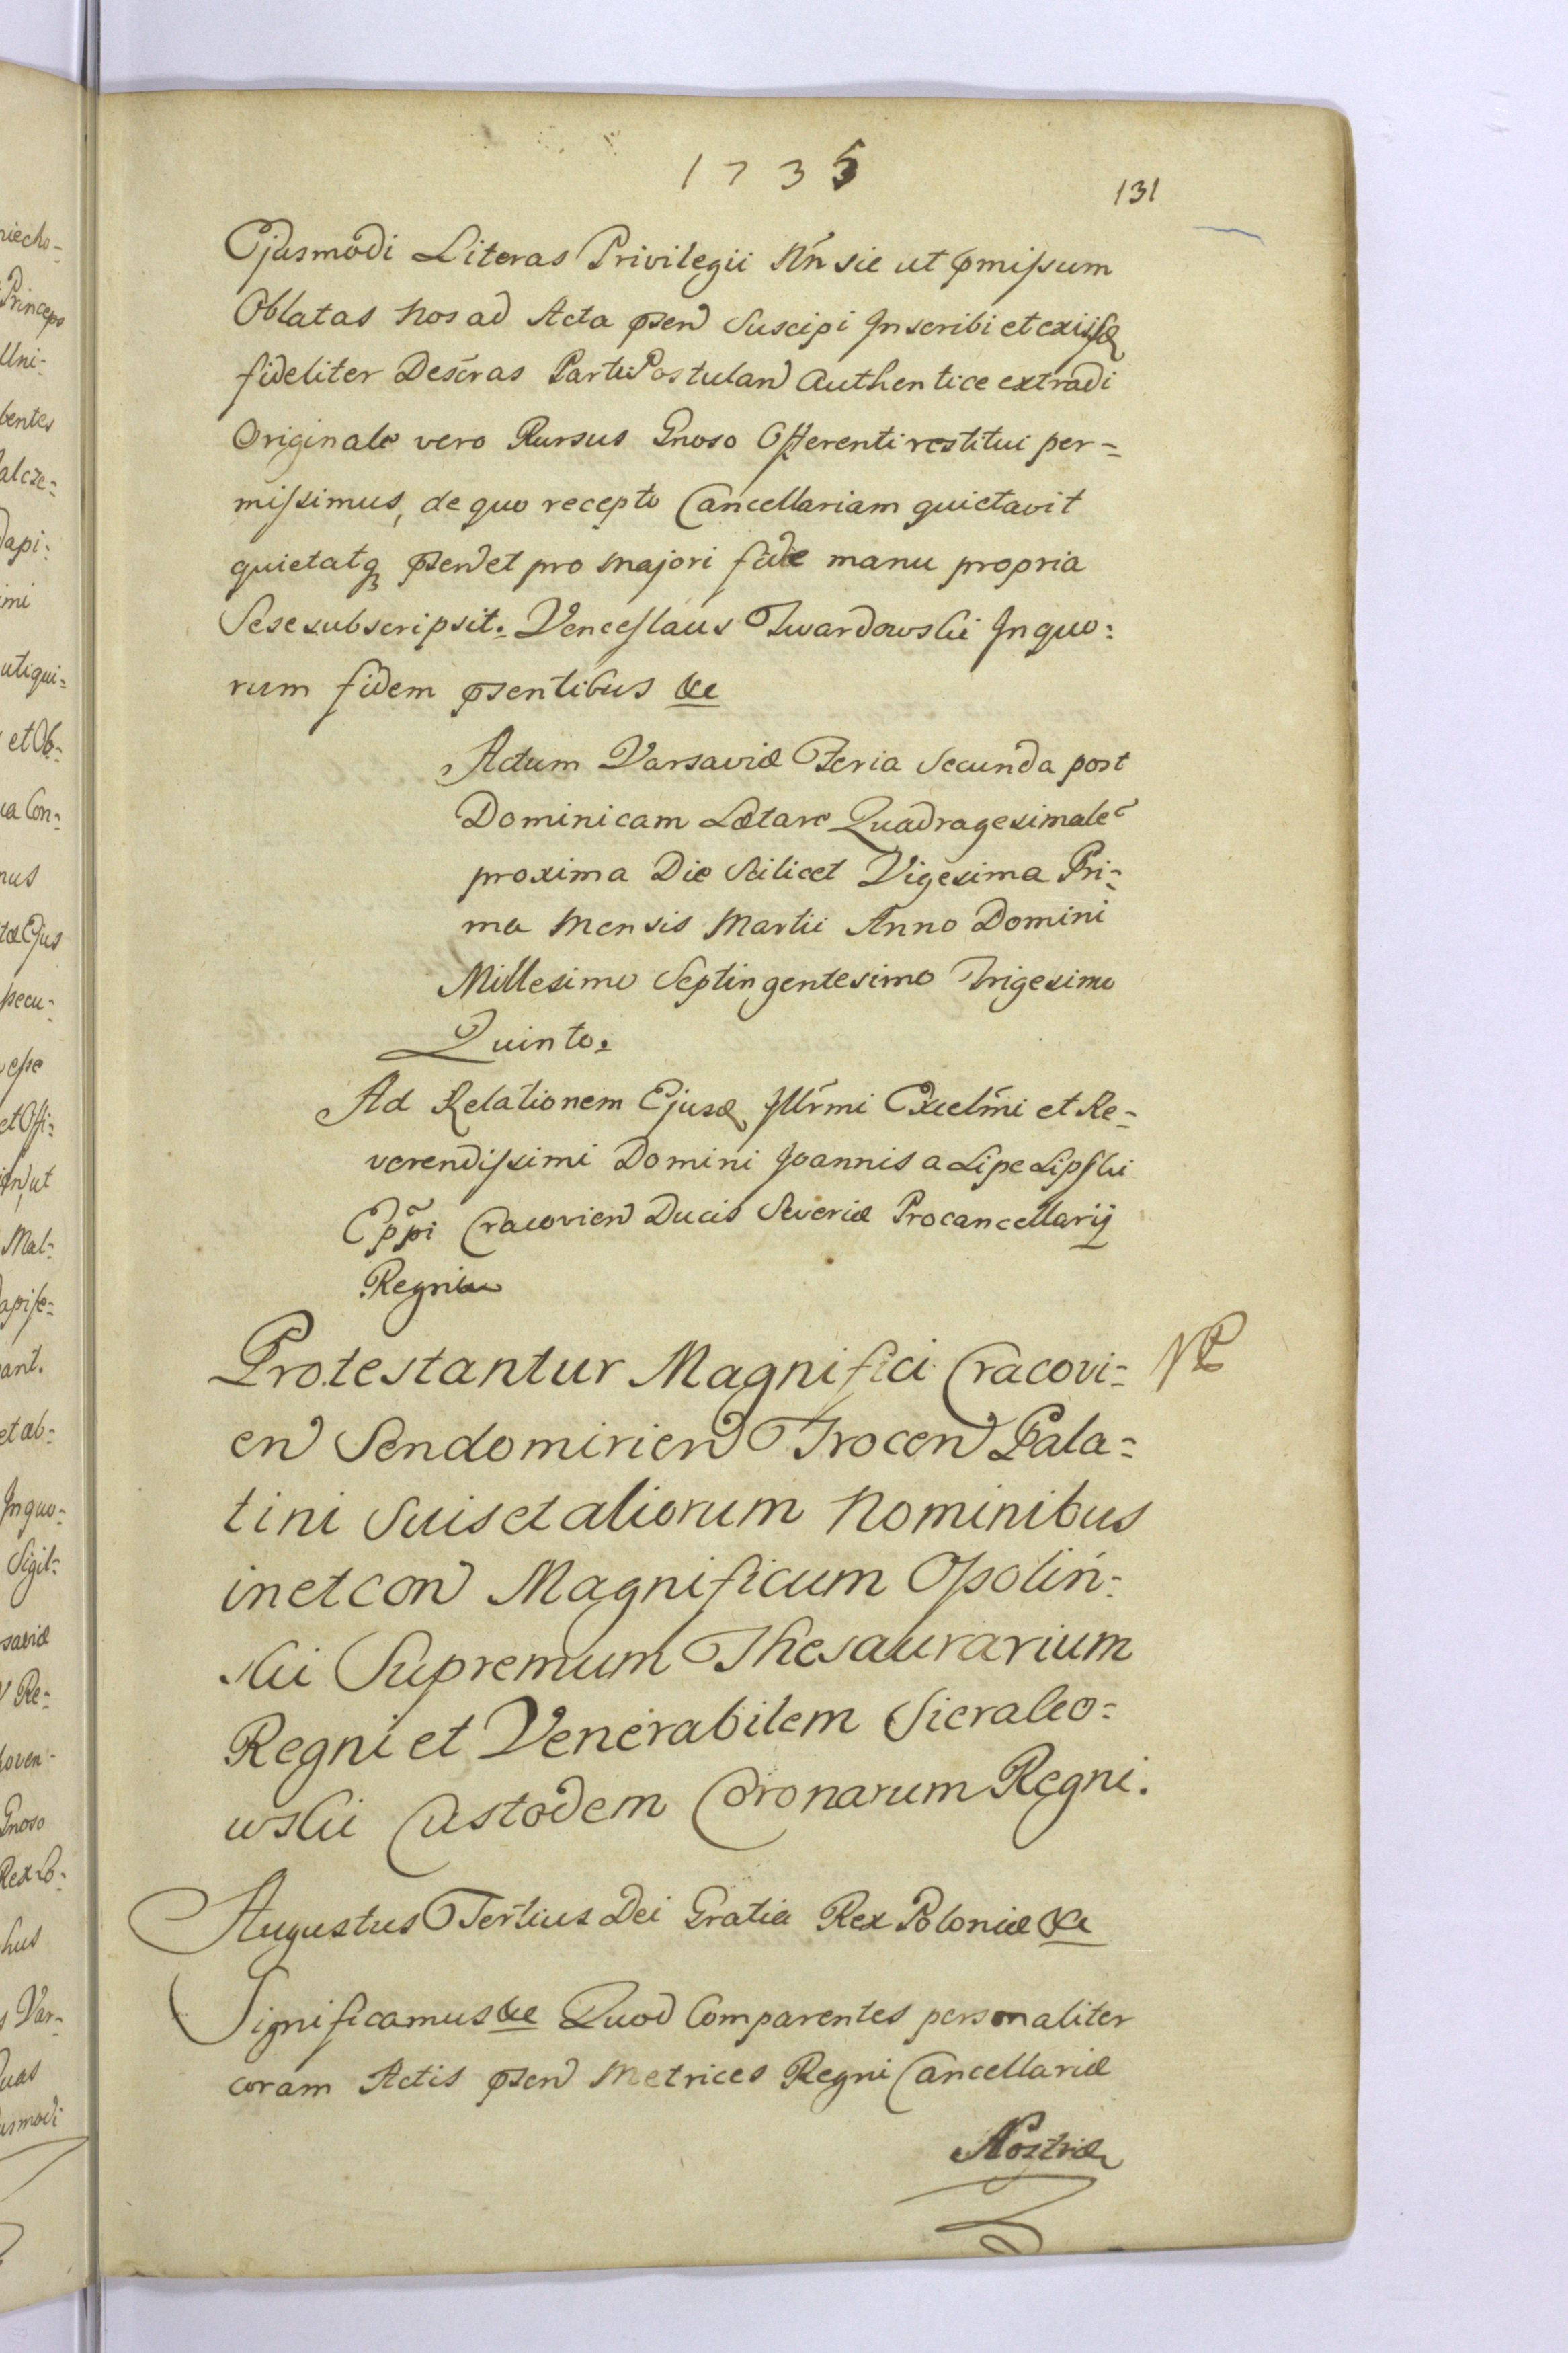 1735
131
Ejusmodi Literas Privilegii Nr̃i sic ut p̃missum
Oblatas Nos ad Acta p̃sen Suscipi Inscribi et exiisd
fideliter Descr̃as Parti Postulan Authentice extradi
Originale vero Rursus Gnoso Offerenti restitui per=
missimus, de quo recepto Cancellariam quietavit
quietatq p̃sen et pro Majori fide manu propria
Sese subscripsit. Venceslaus Twardowski In quo=
rum fidem p̃sentibus &c
Actum Varsaviæ Feria Secunda post
Dominicam Lætare Quadragesimale
proxima Die Scilicet Vigesima Pri=
ma Mensis Martii Anno Domini
Millesimo Septingentesimo Trigesimo
Quinto.
Ad Relationem Ejusd Illr̃mi Excelm̃i et Re=
verendissimi Domini Joannis a Lipe Lipski
Epp̃i Cracovien Ducis Severiæ Procancellarij
Regni
Protestantur Magnifici Cracovi=
en Sendomirien Trocen Pala=
tini Suis et aliorum Nominibus
in et con Magnificum Ossolin=
ski Supremum Thesaurarium
Regni et Venerabilem Sierako=
wski Custodem Coronarum Regni.
Augustus Tertius Dei Gratia Rex Poloniæ &c
Significamus &c Quod Comparentes personaliter
coram Actis p̃sen Metrices Regni Cancellariæ
Nostræ